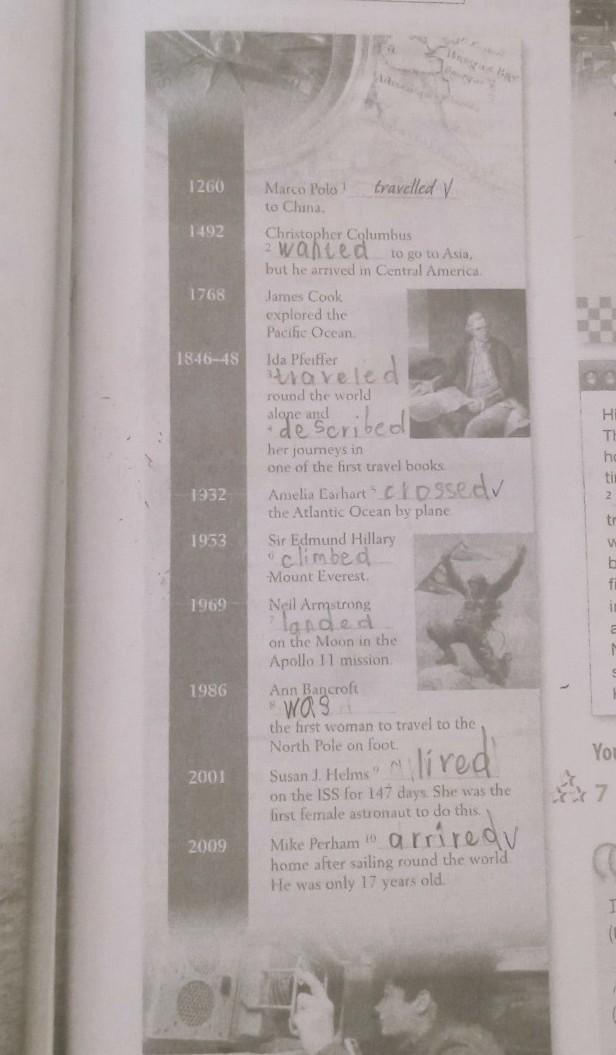 1260
Marco Polo 1 travelled √
to China.
1492
Christopher Columbus
2 wanted to go to Asia,
but he arrived in Central America.
1768
James Cook
explored the
Pacific Ocean.
1846–48
Ida Pfeiffer
3 traveled
round the world
alone and
4 described
her journeys in
one of the first travel books.
1932
Amelia Earhart 5 crossed √
the Atlantic Ocean by plane.
1953
Sir Edmund Hillary
6 climbed
Mount Everest.
1969
Neil Armstrong
7 landed
on the Moon in the
Apollo 11 mission.
1986
Ann Bancroft
8 was
the first woman to travel to the
North Pole on foot.
2001
Susan J. Helms 9 lired
on the ISS for 147 days. She was the
first female astronaut to do this.
2009
Mike Perham 10 arrired √
home after sailing round the world.
He was only 17 years old.
Hi
2
You
7